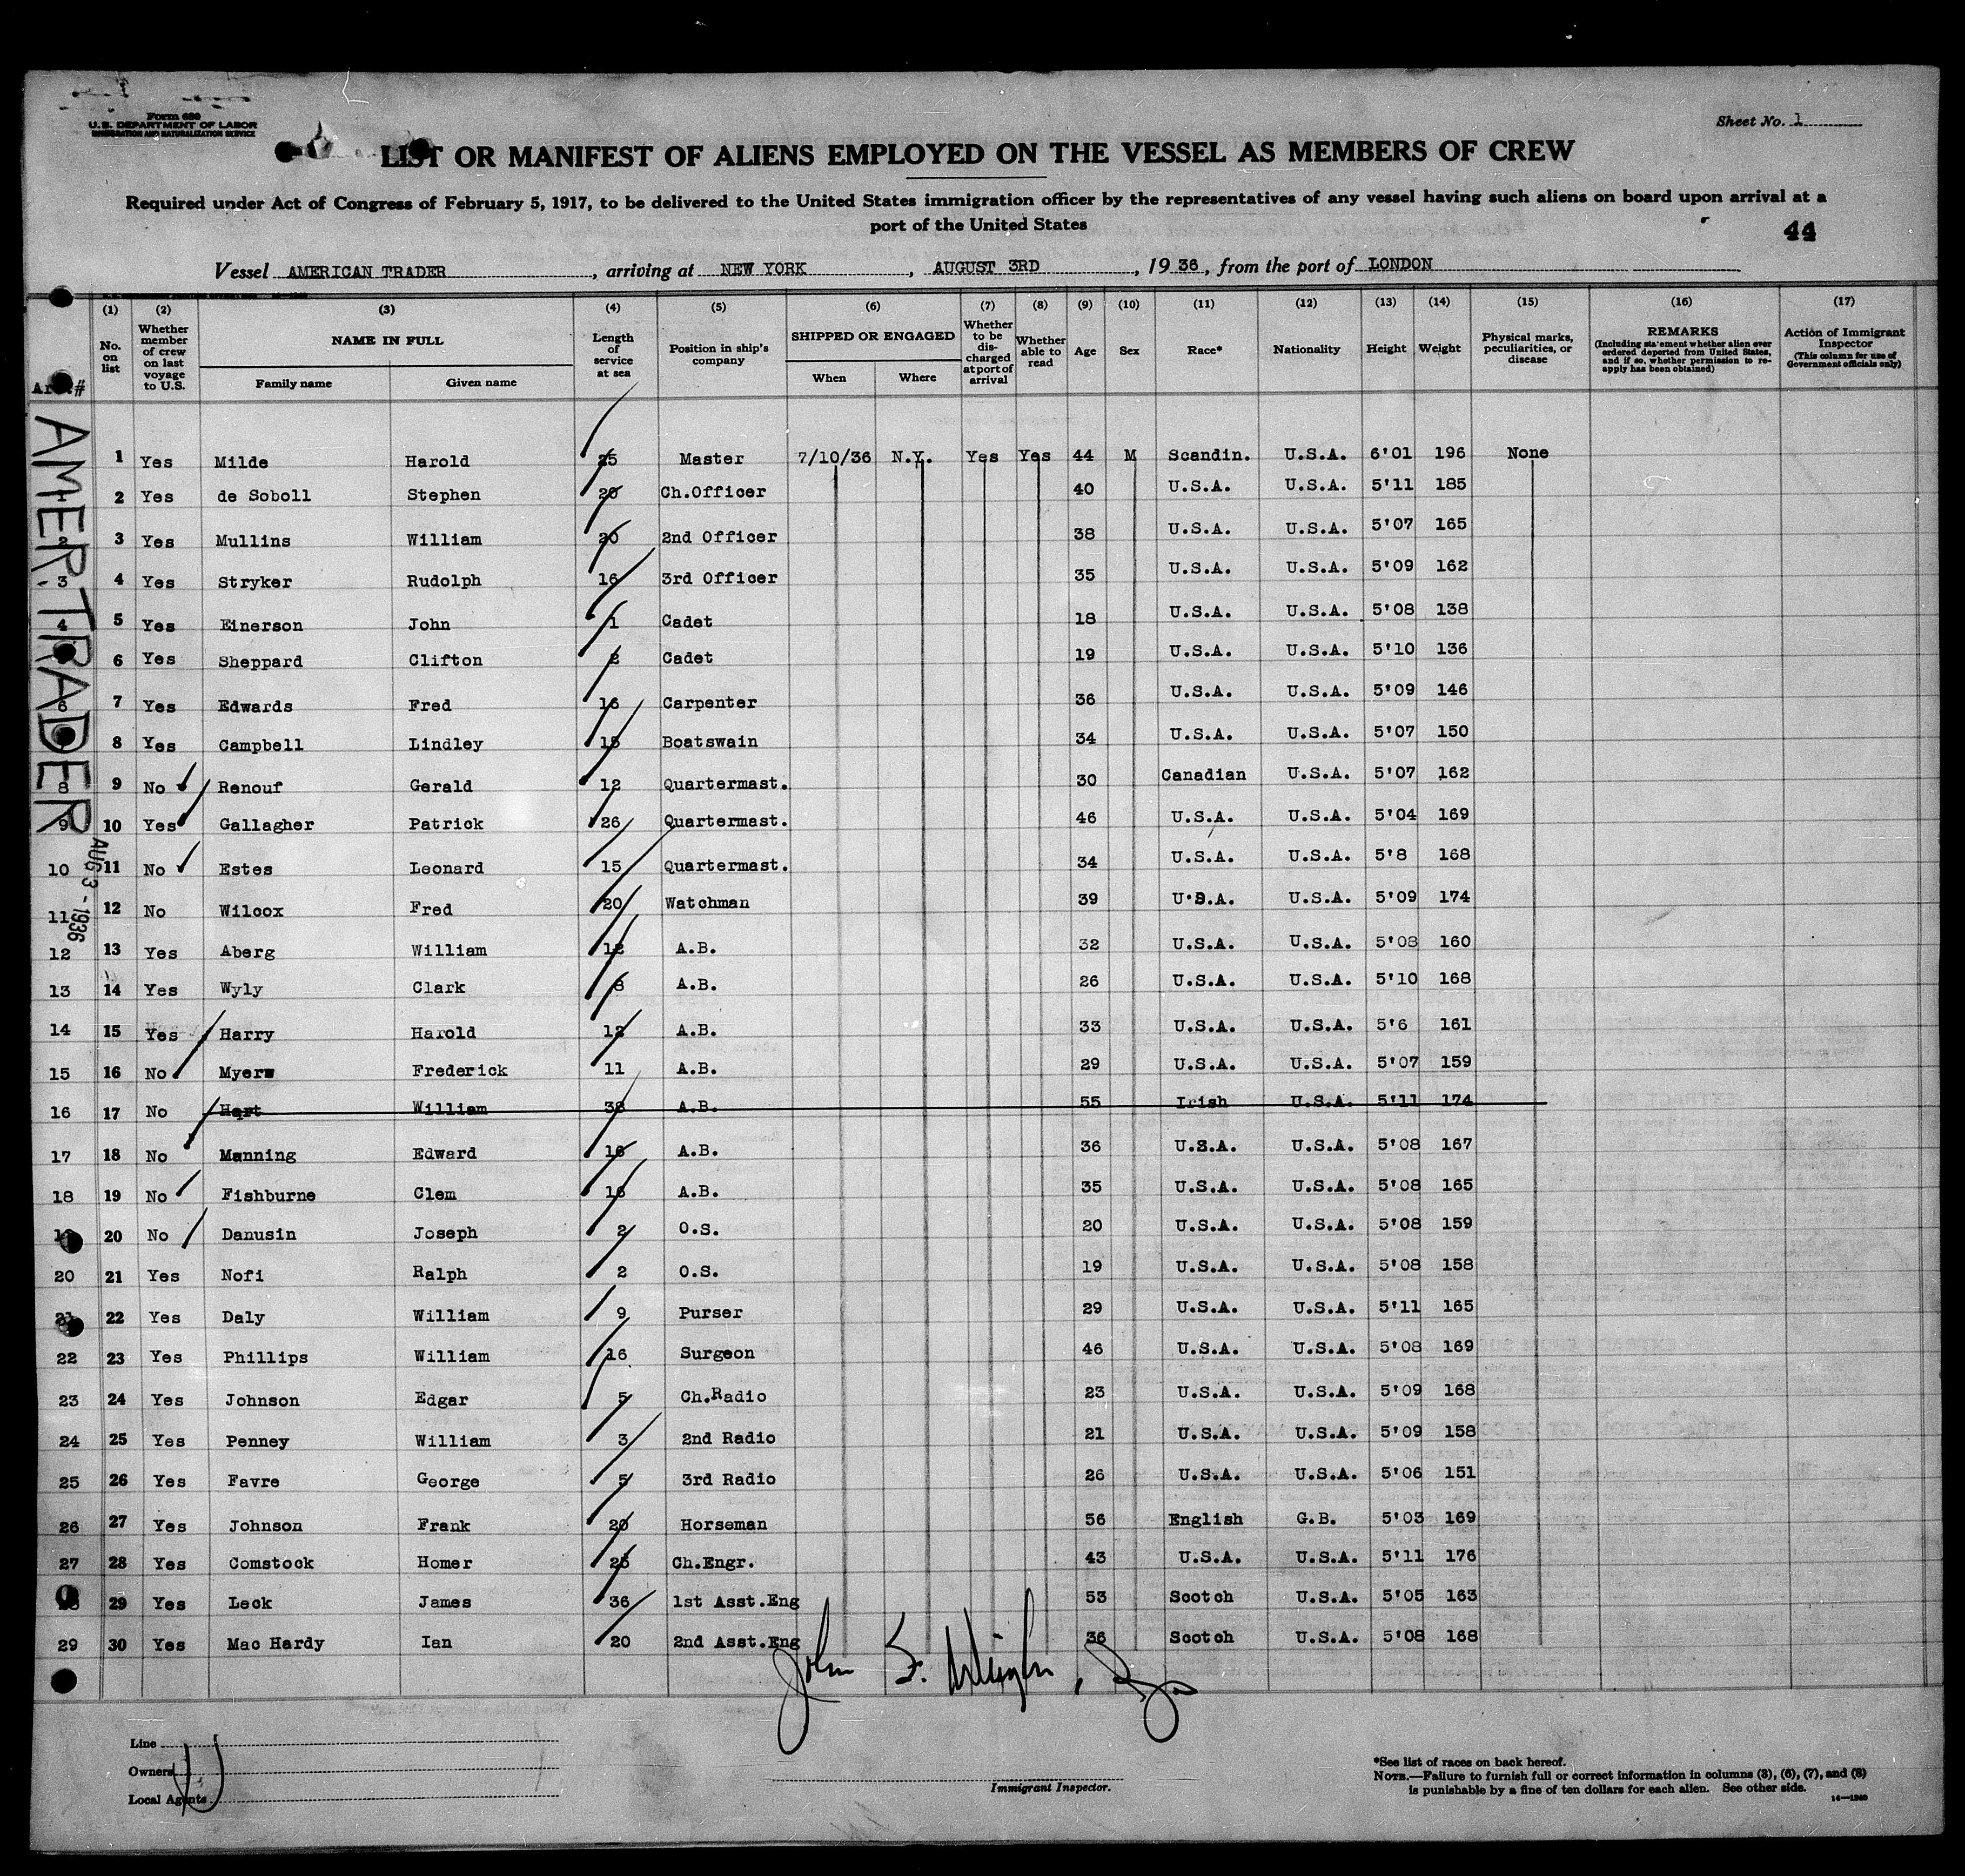 Form 680
U.S. DEPARTMENT OF LABOR
IMMIGRATION AND NATURALIZATION SERVICE
Sheet No. 1
LIST OR MANIFEST OF ALIENS EMPLOYED ON THE VESSEL AS MEMBERS OF CREW
Required under Act of Congress of February 5, 1917, to be delivered to the United States immigration officer by the representatives of any vessel having such aliens on board upon arrival at a
port of the United States
44
Vessel AMERICAN TRADER, arriving at NEW YORK, AUGUST 3RD, 1936, from the port of LONDON
(1) (2) (3) (4) (5) (6) (7) (8) (9) (10) (11) (12) (13) (14) (15) (16) (17)
No. on list Whether member of crew on last voyage to U.S. NAME IN FULL Family name Given name Length of service at sea Position in ship's company SHIPPED OR ENGAGED When Where Whether to be discharged at port of arrival Whether able to read Age Sex Race* Nationality Height Weight Physical marks, peculiarities, or disease REMARKS (Including statement whether alien ever ordered deported from United States, and if so, whether permission to re-apply has been obtained) Action of Immigrant Inspector (This column for use of Government officials only)
AMER TRADER
AUG 3 - 1936
1 Yes Milde Harold 25 Master 7/10/36 N.Y. Yes Yes 44 M Scandin. U.S.A. 6'01 196 None
2 Yes de Soboll Stephen 20 Ch.Officer 40 U.S.A. U.S.A. 5'11 185
2 3 Yes Mullins William 20 2nd Officer 38 U.S.A. U.S.A. 5'07 165
3 4 Yes Stryker Rudolph 16 3rd Officer 35 U.S.A. U.S.A. 5'09 162
4 5 Yes Einerson John 1 Cadet 18 U.S.A. U.S.A. 5'08 138
6 Yes Sheppard Clifton 2 Cadet 19 U.S.A. U.S.A. 5'10 136
6 7 Yes Edwards Fred 16 Carpenter 36 U.S.A. U.S.A. 5'09 146
8 Yes Campbell Lindley 15 Boatswain 34 U.S.A. U.S.A. 5'07 150
8 9 No Renouf Gerald 12 Quartermast. 30 Canadian U.S.A. 5'07 162
9 10 Yes Gallagher Patrick 26 Quartermast. 46 U.S.A. U.S.A. 5'04 169
10 11 No Estes Leonard 15 Quartermast. 34 U.S.A. U.S.A. 5'8 168
11 12 No Wilcox Fred 20 Watchman 39 U.S.A. U.S.A. 5'09 174
12 13 Yes Aberg William 12 A.B. 32 U.S.A. U.S.A. 5'08 160
13 14 Yes Wyly Clark 8 A.B. 26 U.S.A. U.S.A. 5'10 168
14 15 Yes Harry Harold 12 A.B. 33 U.S.A. U.S.A. 5'6 161
15 16 No Myers Frederick 11 A.B. 29 U.S.A. U.S.A. 5'07 159
16 17 No Hart William 38 A.B. 55 Irish U.S.A. 5'11 174
17 18 No Manning Edward 16 A.B. 36 U.S.A. U.S.A. 5'08 167
18 19 No Fishburne Clem 16 A.B. 35 U.S.A. U.S.A. 5'08 165
20 No Danusin Joseph 2 O.S. 20 U.S.A. U.S.A. 5'08 159
20 21 Yes Nofi Ralph 2 O.S. 19 U.S.A. U.S.A. 5'08 158
22 Yes Daly William 9 Purser 29 U.S.A. U.S.A. 5'11 165
22 23 Yes Phillips William 16 Surgeon 46 U.S.A. U.S.A. 5'08 169
23 24 Yes Johnson Edgar 5 Ch.Radio 23 U.S.A. U.S.A. 5'09 168
24 25 Yes Penney William 3 2nd Radio 21 U.S.A. U.S.A. 5'09 158
25 26 Yes Favre George 5 3rd Radio 26 U.S.A. U.S.A. 5'06 151
26 27 Yes Johnson Frank 20 Horseman 56 English G.B. 5'03 169
27 28 Yes Comstock Homer 25 Ch.Engr. 43 U.S.A. U.S.A. 5'11 176
29 Yes Leck James 36 1st Asst.Eng 53 Scotch U.S.A. 5'05 163
29 30 Yes Mac Hardy Ian 20 2nd Asst.Eng 36 Scotch U.S.A. 5'08 168
John
Line
Owners
Local Agents
Immigrant Inspector.
*See list of races on back hereof.
NOTE.—Failure to furnish full or correct information in columns (3), (6), (7), and (8)
is punishable by a fine of ten dollars for each alien. See other side.